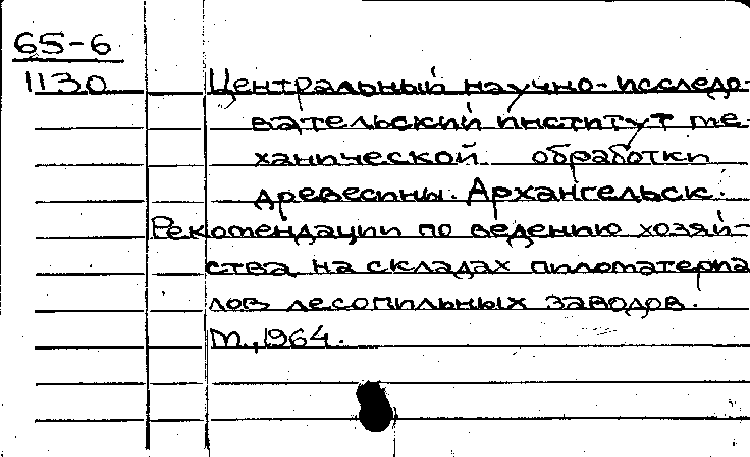 65-6
1130
Центральный научно-исследо-
вательский институт ме-
ханической обработки
древесины. Архангельск.
Рекомендации по ведению хозяй-
ства на складах пиломатериа
лов лесопильных заводов.
М., 1964.